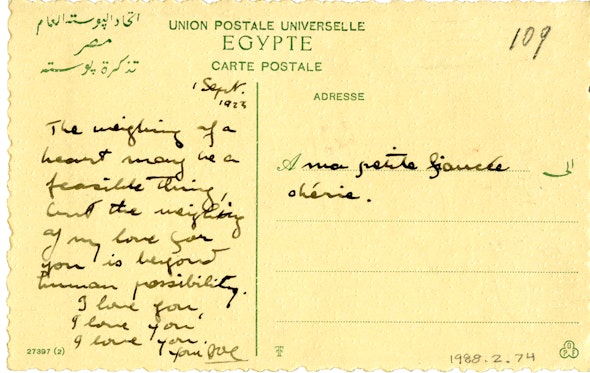 اتحاد البوسته العام
مصر
تذكرة بوسته
UNION POSTALE UNIVERSELLE
EGYPTE
CARTE POSTALE
109
1 Sept.
1923
The weighing of a
heart may be a
feasible thing,
but the weighing
of my love for
you is beyond
human possibility.
I love you,
I love you,
I love you.
Your
ADRESSE
A ma petite fiancée الى
chérie.
27397 (2)
1988.2.74